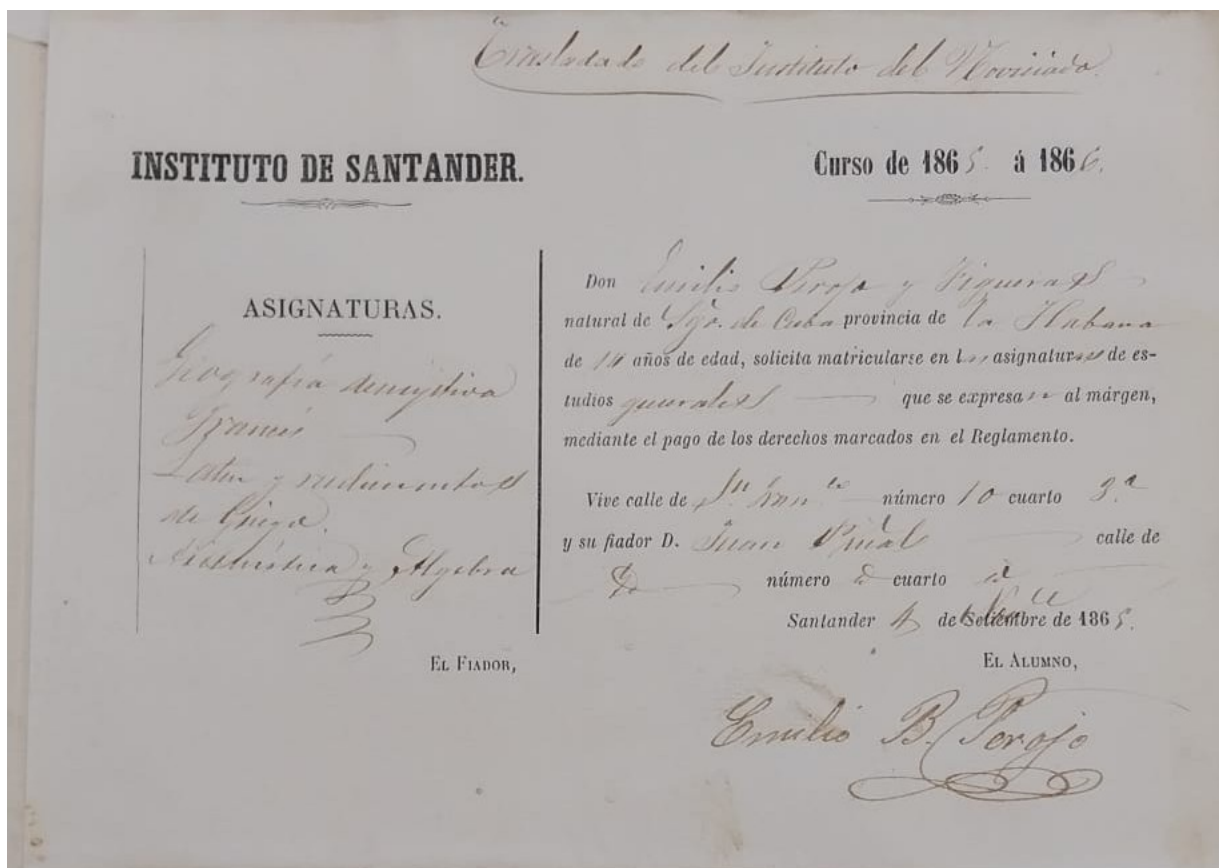 Trasladado del Instituto del Noviciado.
INSTITUTO DE SANTANDER.
Curso de 1865. á 1866.
ASIGNATURAS.
Geografía descriptiva
Francés
Latin y rudimentos
de Griego.
Aritmética y Algebra
EL FIADOR,
Don Emilio Perojo y Figueras
natural de Sgo. de Cuba provincia de la Habana
de 14 años de edad, solicita matricularse en las asignaturas de es-
tudios generales que se expresan al márgen,
mediante el pago de los derechos marcados en el Reglamento.
Vive calle de número 10 cuarto 3.º
y su fiador D. Juan calle de
número cuarto
Santander de Setiembre de 1865.
EL ALUMNO,
Emilio B. Perojo